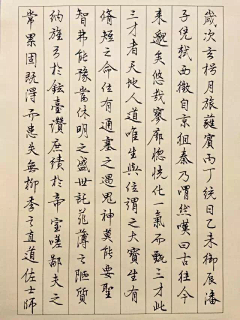 歲次玄枵月旅蕤賓丙丁統日乙未御辰潘
子凭軾西徵自京徂秦乃喟然嘆曰古往今
來邈矣悠哉寥廓惚恍化一氣而甄三才此
三才者天地人道唯生與位謂之大寶生有
脩短之命位有通塞之遇鬼神莫能要聖
智弗能豫當休明之盛世託菲薄之陋質
納旌弓於鉉臺讚庶績於帝室嗟鄙夫之
常累固既得而患失無柳季之直道佐士師